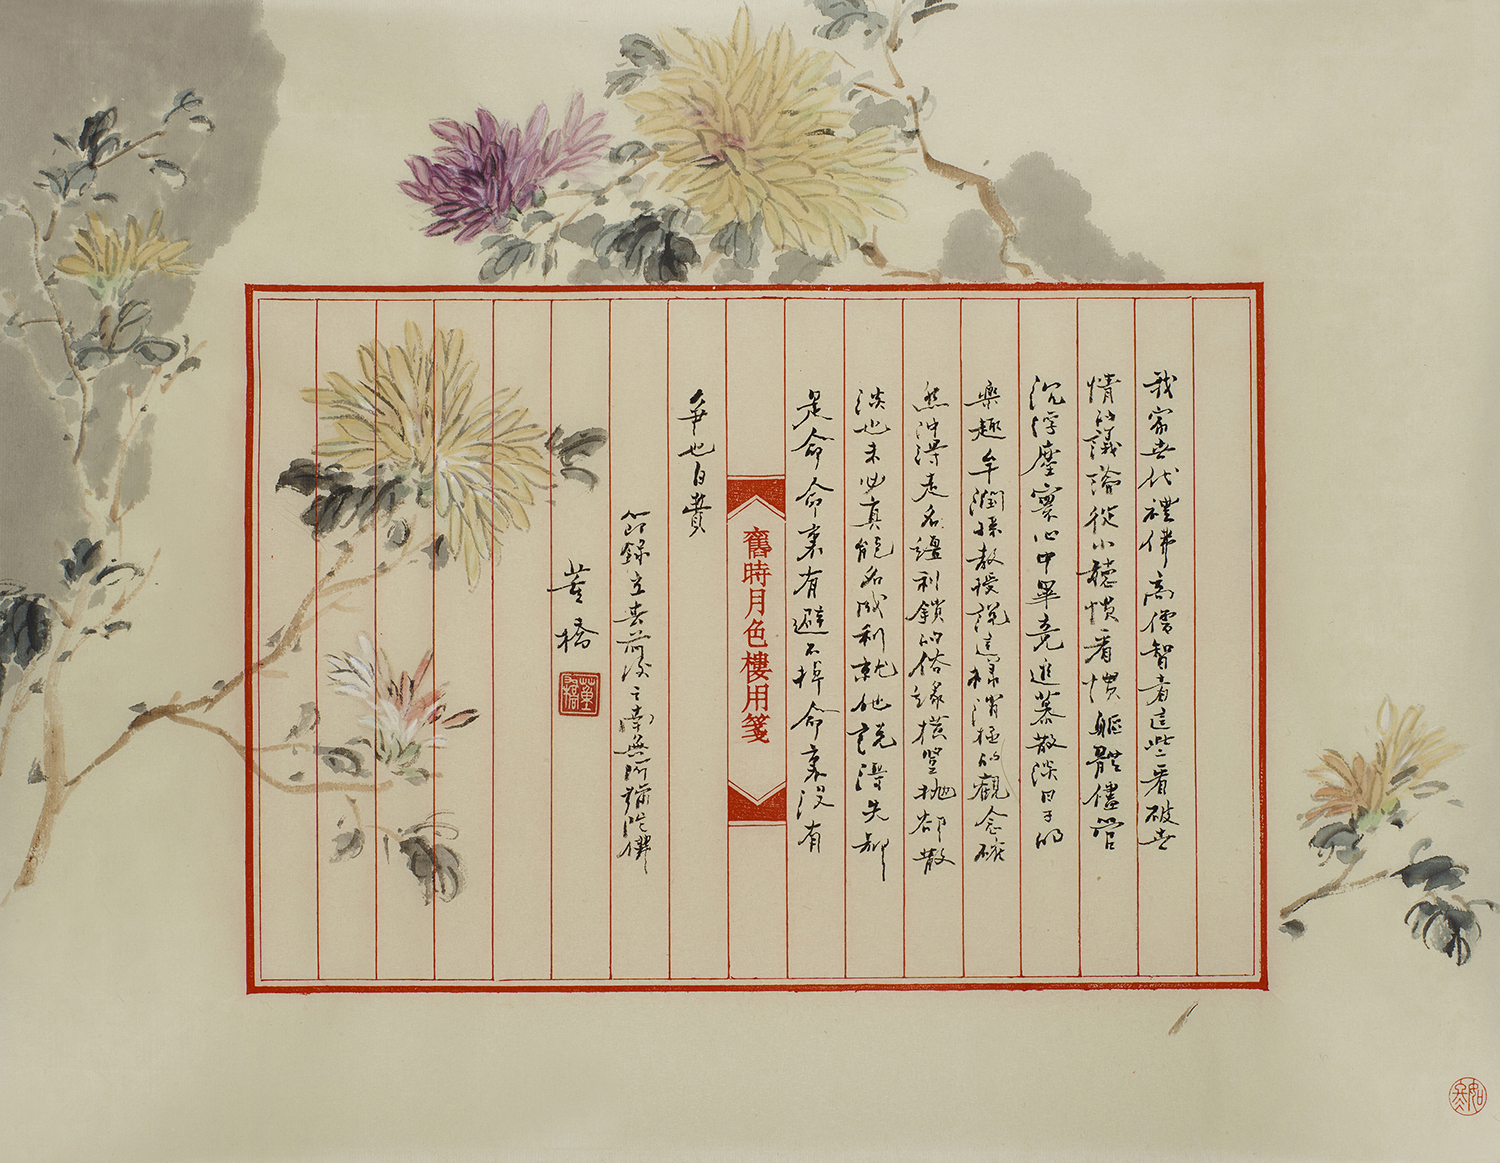 我家世代禮佛高僧智者這些看破世
情的議論從小聽慣看慣軀體儘管
沉浮塵寰心中畢竟進慕散淡日子的
樂趣牟潤孫教授說這樣消極的觀念確
然沖淂走名繮利鎖的俗緣橫豎拋卻散
淡也未必真能名成利就他說得失都
是命命裏有避不掉命裏沒有
舊時月色樓用箋
爭也白費
節錄立春前後之南無阿彌陀佛
董橋
董橋